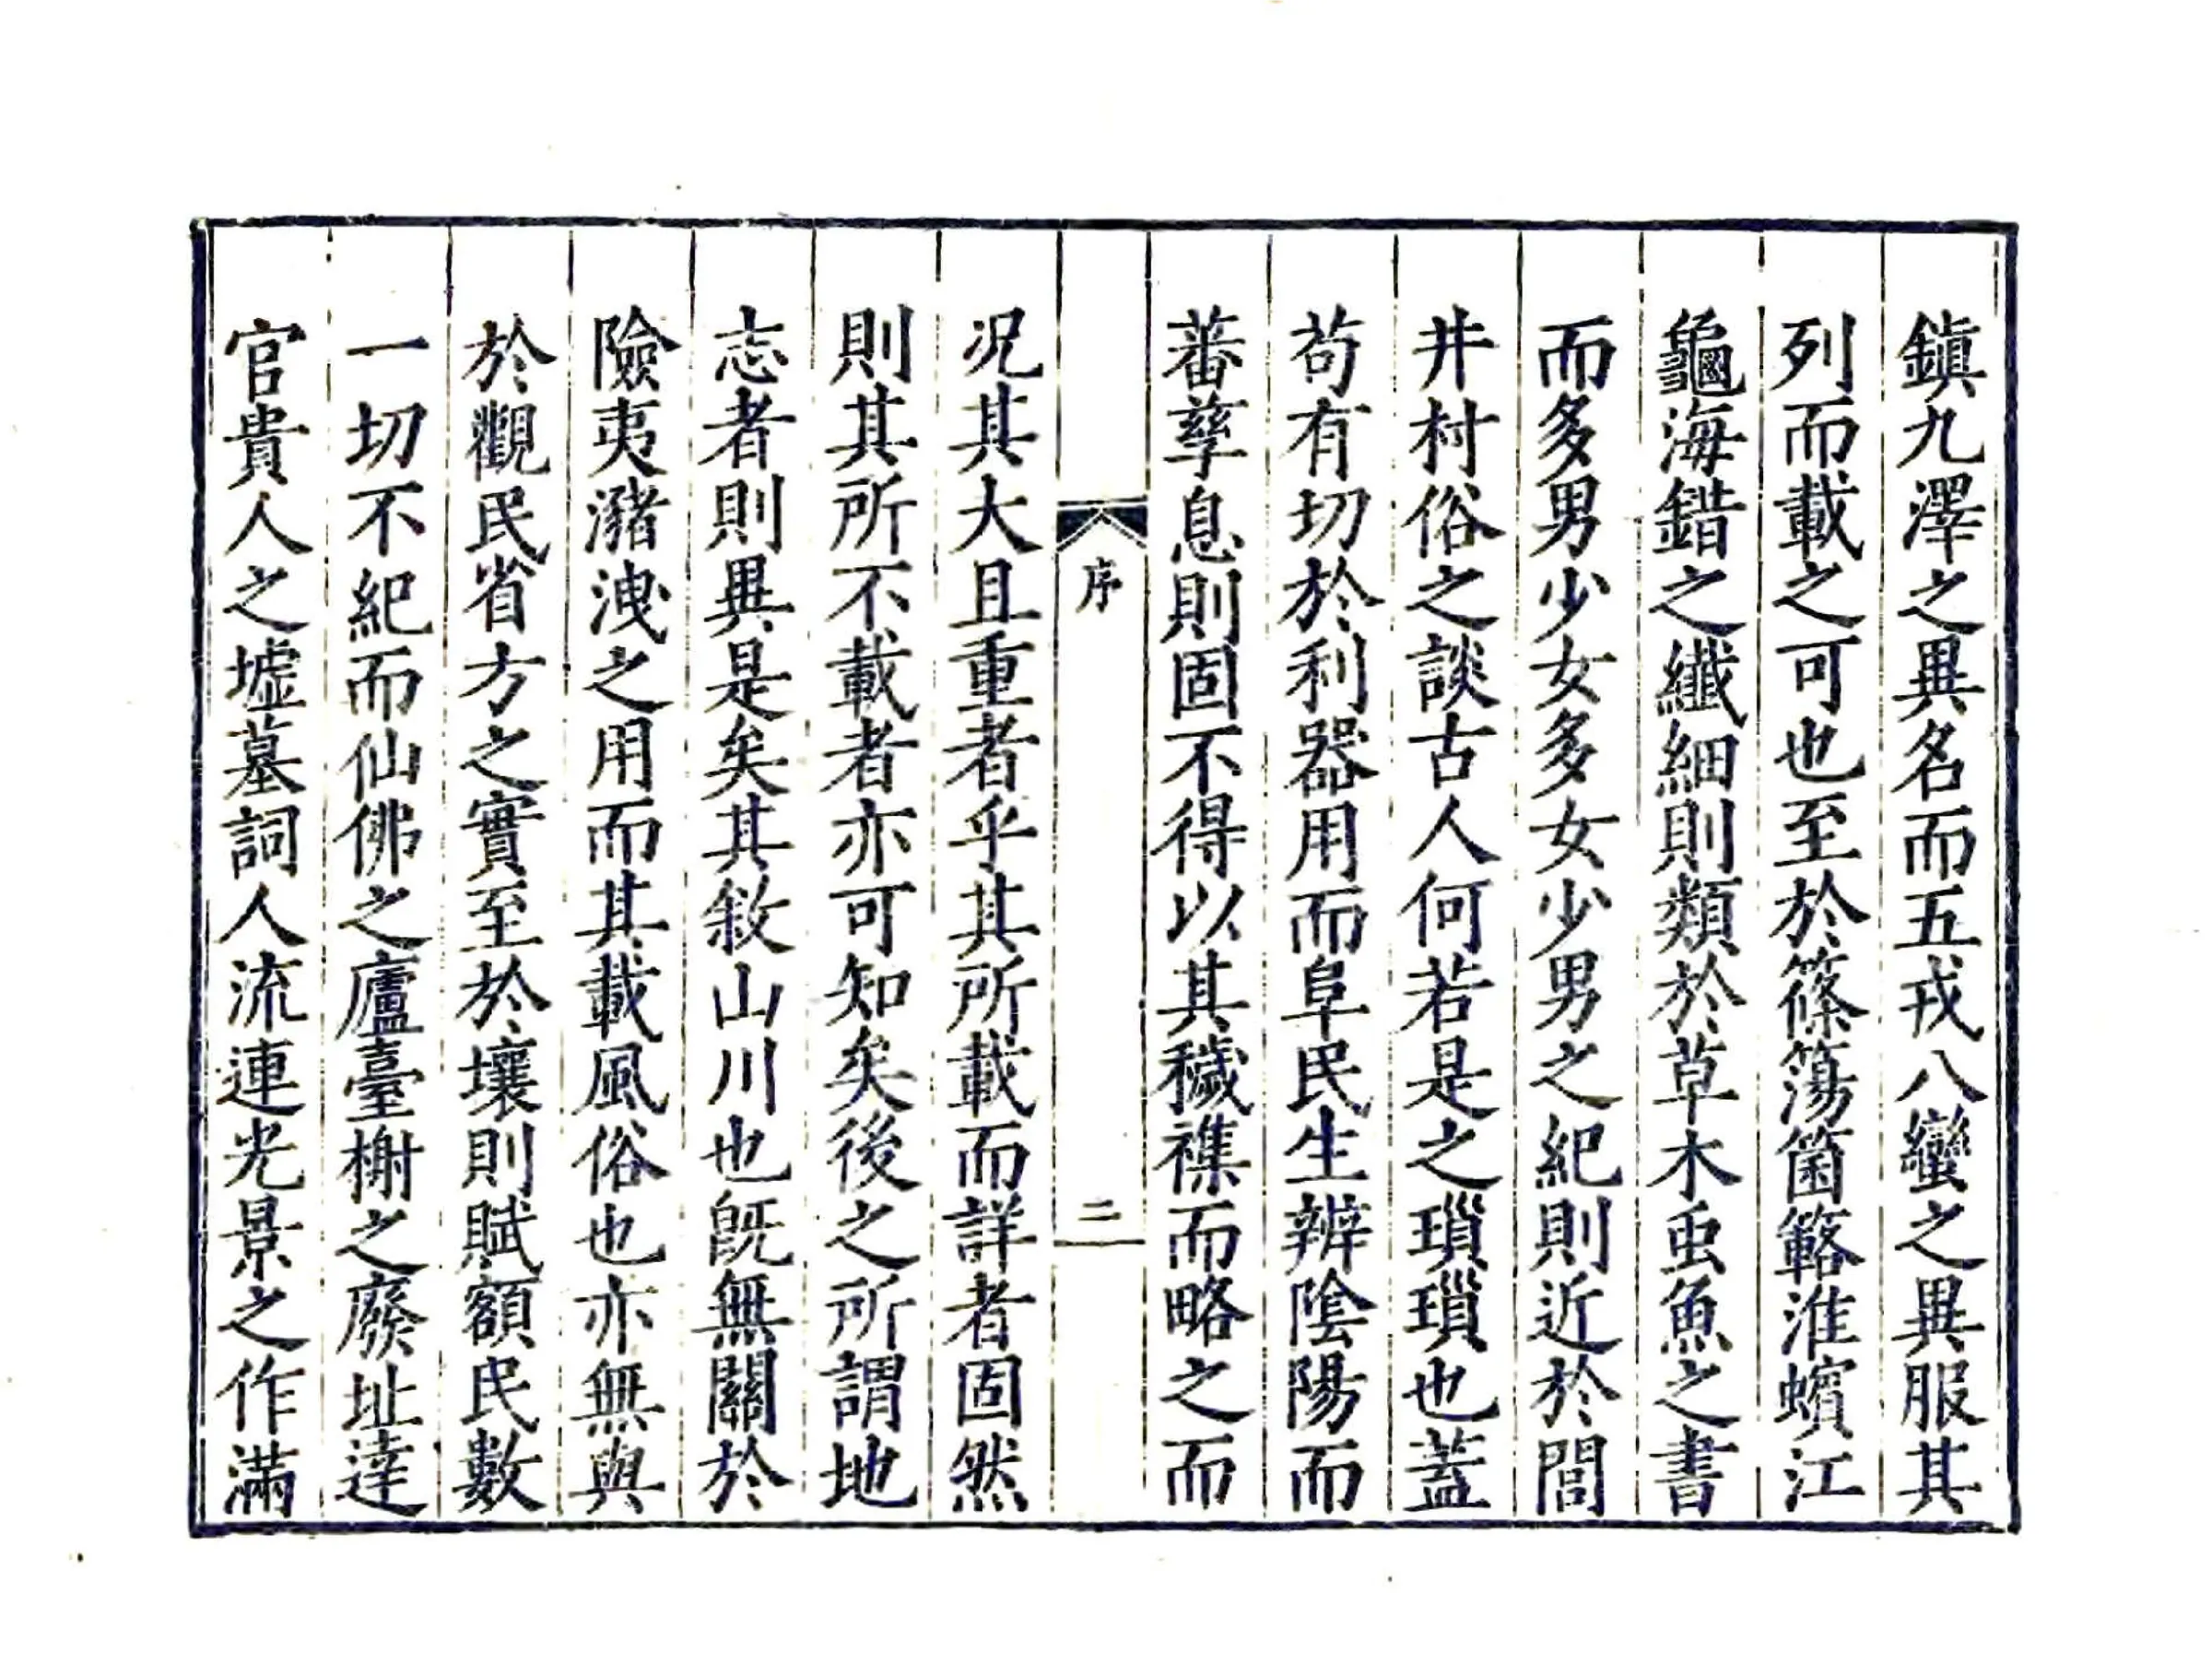 鎮九澤之異名而五戎八蠻之異服其
列而載之可也至於篠簜箘簵淮蠙江
龜海錯之纖細則類於草木虫魚之書
而多男少女多女少男之紀則近於閭
井村俗之談古人何若是之瑣瑣也蓋
苟有切於利器用而阜民生辨陰陽而
蕃孳息則固不得以其穢襍而略之而
序
二
况其大且重者乎其所載而詳者固然
則其所不載者亦可知矣後之所謂地
志者則異是矣其敘山川也旣無關於
險夷瀦洩之用而其載風俗也亦無與
於觀民省方之實至於壤則賦額民數
一切不紀而仙佛之廬臺榭之廢址達
官貴人之墟墓詞人流連光景之作滿